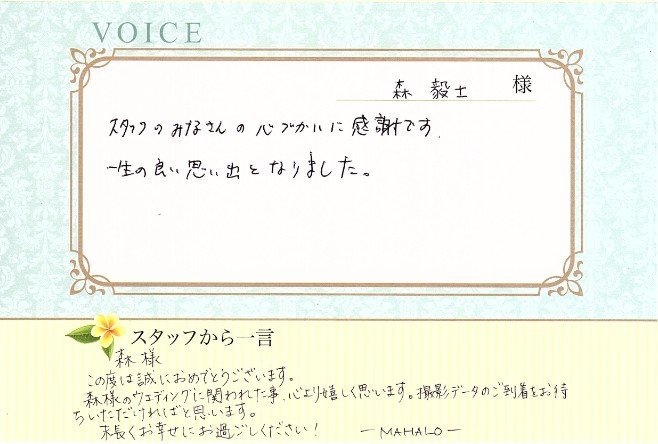 VOICE
森 毅士 様
スタッフのみなさんの心づかいに感謝です.
一生の良い思い出となりました。
スタッフから一言
森様
この度は誠におめでとうございます。
森様のウェディングに関われた事、心より嬉しく思います。撮影データのご到着をお待
ちいただければと思います。
末長くお幸せにお過ごしください！ －MAHALO－